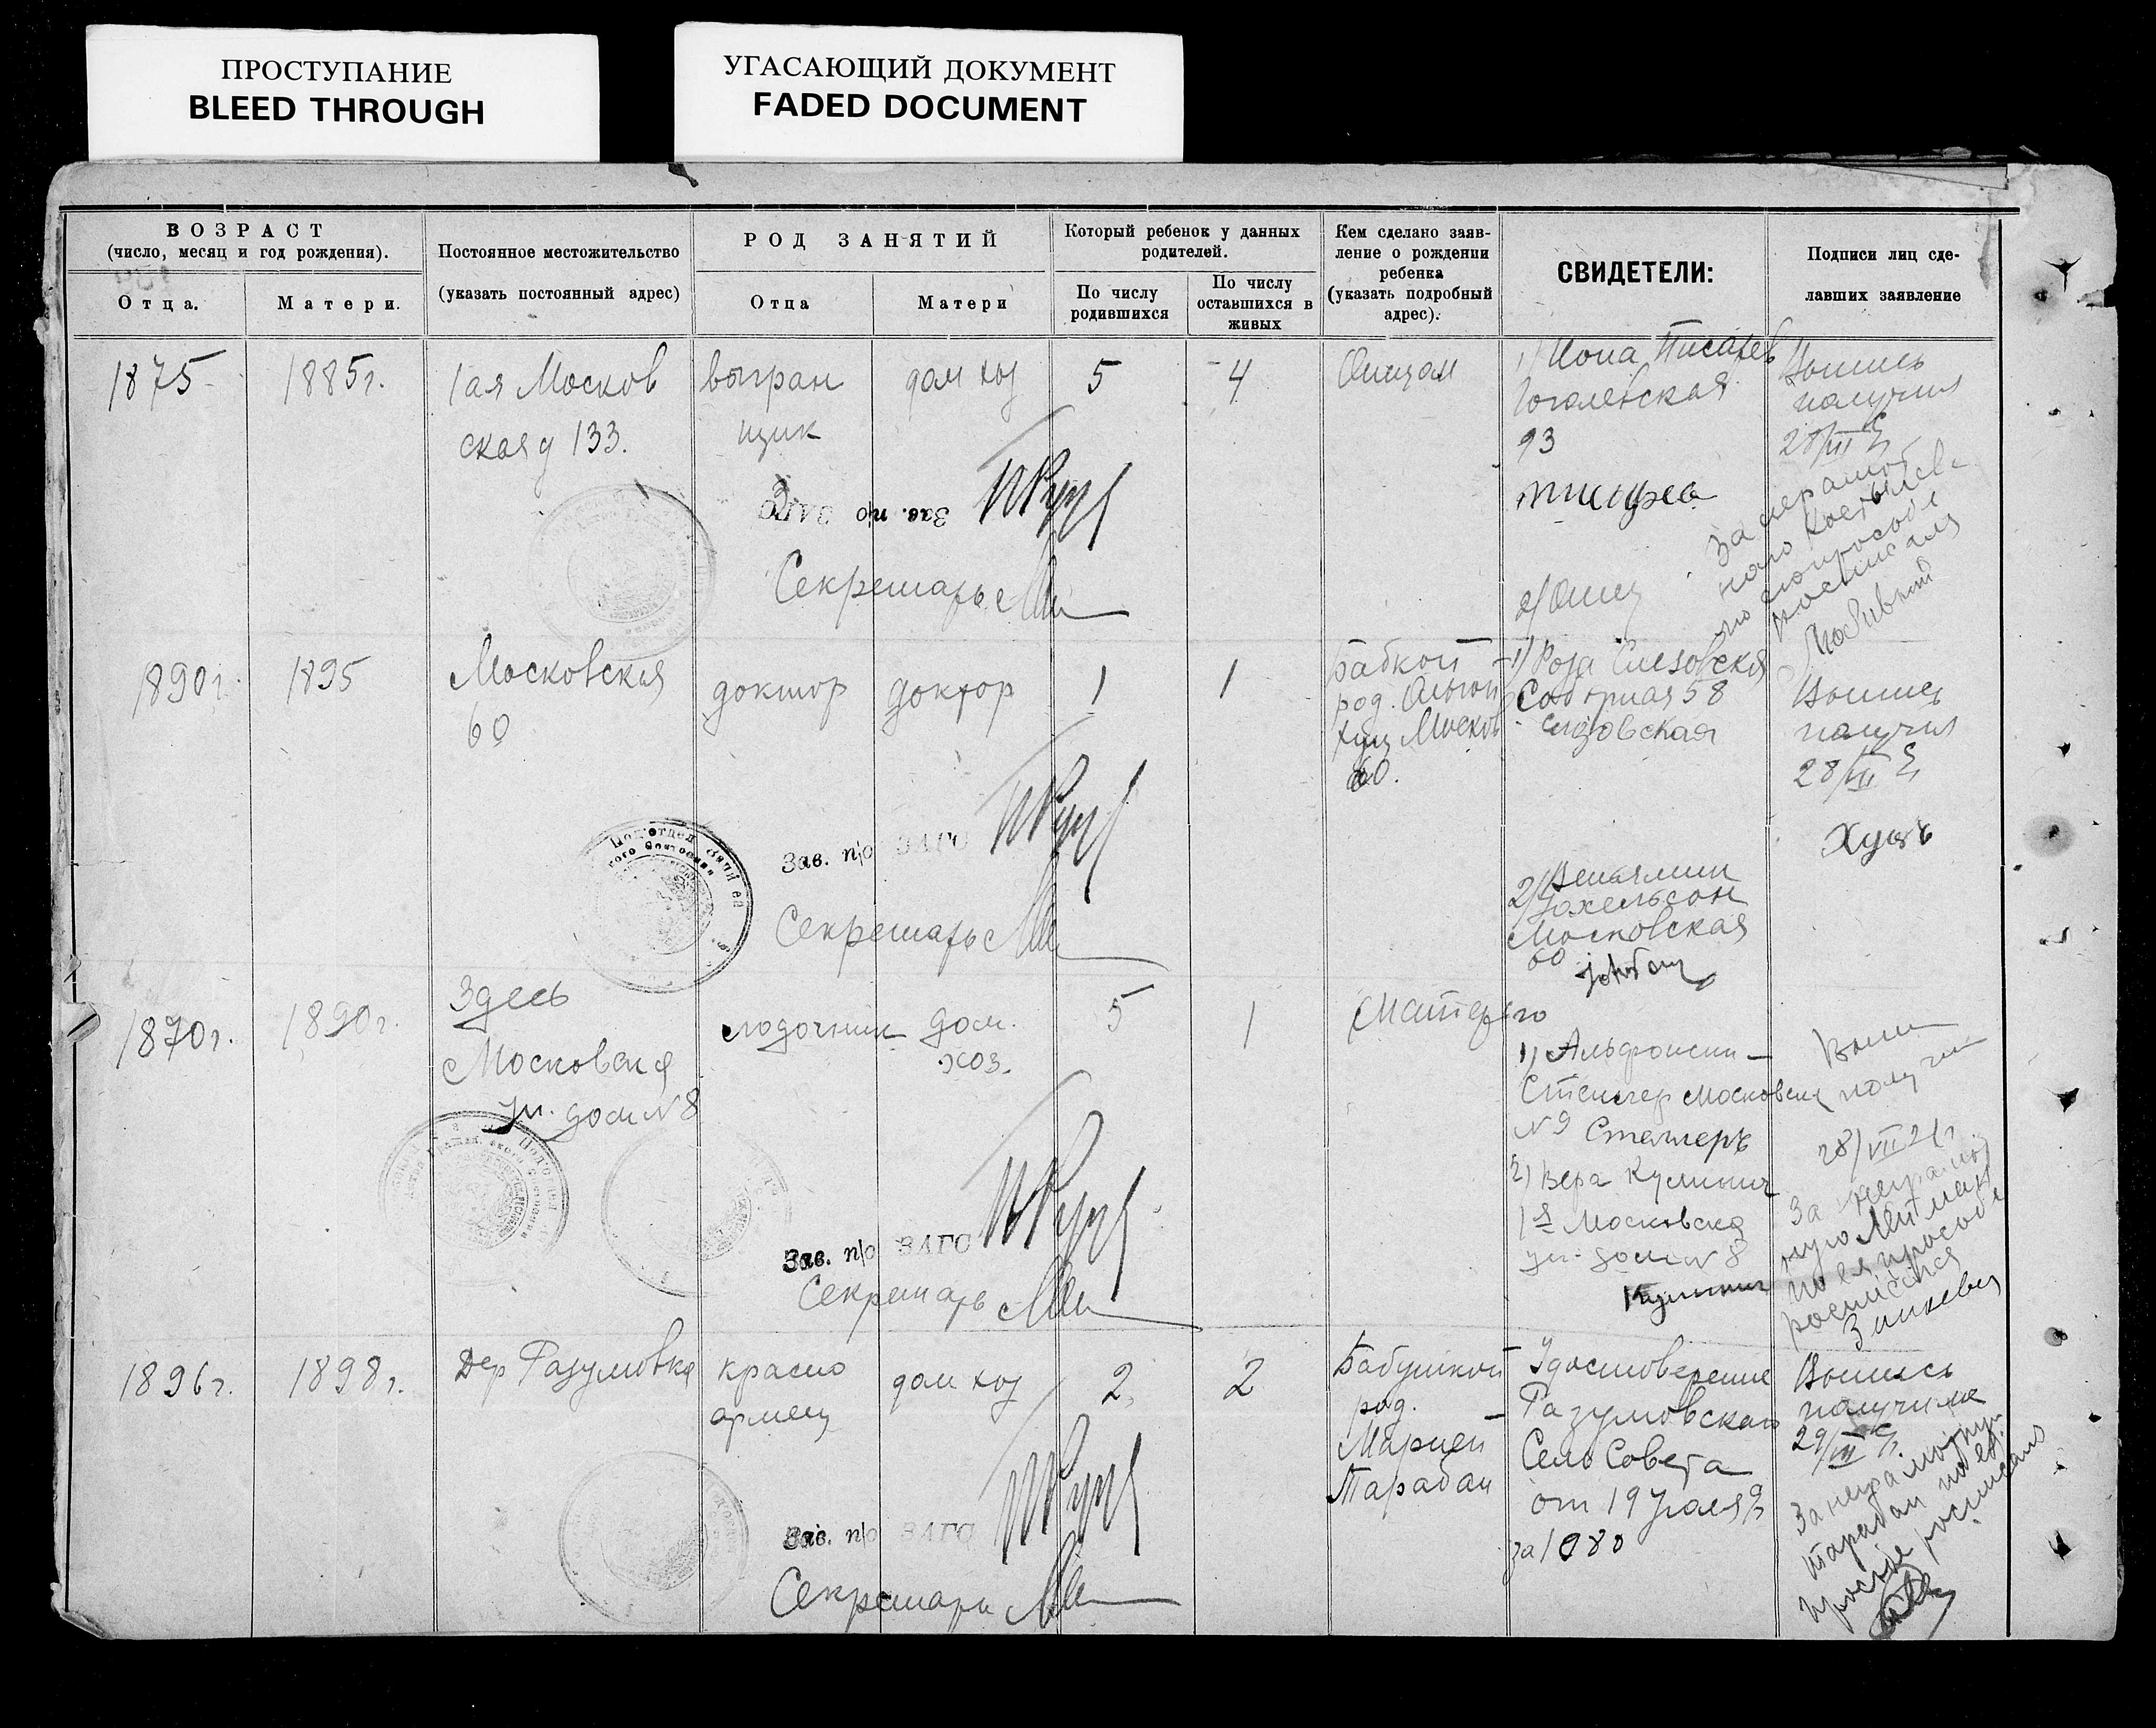 ПРОСТУПАНИЕ
BLEED THROUGH
УГАСАЮЩИЙ ДОКУМЕНТ
FADED DOCUMENT
ВОЗРАСТ
(число, месяц и год рождения).
Отца.
Матери.
Постоянное местожительство
(указать постоянный адрес)
РОД ЗАНЯТИЙ
Отца
Матери
Который ребенок у данных
родителей.
По числу
родившихся
По числу
оставшихся в
живых
Кем сделано заяв-
ление о рождении
ребенка
(указать подробный
адрес).
СВИДЕТЕЛИ:
Подписи лиц сде-
лавших заявление
1875
1885г.
1ая Москов
ская д 133.
выгран
щик
дом хоз
5
4
Отцом
1) Иона Писарев
Гоголевская
93
2) Отец
Выпись
получил
28/VII
За неграмот
ного
по его просьбе
расписался
Зав. п/о ЗАГС
Секретарь
1890г.
1895
Московская
60
доктор
доктор
1
1
Бабкой
род.
Москов
60.
1) Роза
Соборная 58
2) Вениамин
Иохельсон
Московская
60
Выпись
получил
28/VII
Зав. п/о ЗАГС
Секретарь
1870г.
1890г.
Здесь
Московская
ул. дом N 8
лодочник
дом.
хоз.
5
1
Матерью
1)
Стенгер Московская
N 9
2) Вера Кулинич
1я Московская
ул. дом N 8
Кулинич
Выпи
получи
28/VII 21г
За неграмот
ную
по ея просьбе
росписался
Зав. п/о ЗАГС
Секретарь
1896г.
1898г.
Дер Разумовка
красно
армеец
дом хоз
2
2
Бабушкой
род.
Марией
Тарабан
Удостоверение
Разумовского
СелоСовета
от 19
за 1080
Выпись
получила
29/VII
За неграмотную
Тарабан по ея
просьбе росписался
Зав. п/о ЗАГС
Секретарь